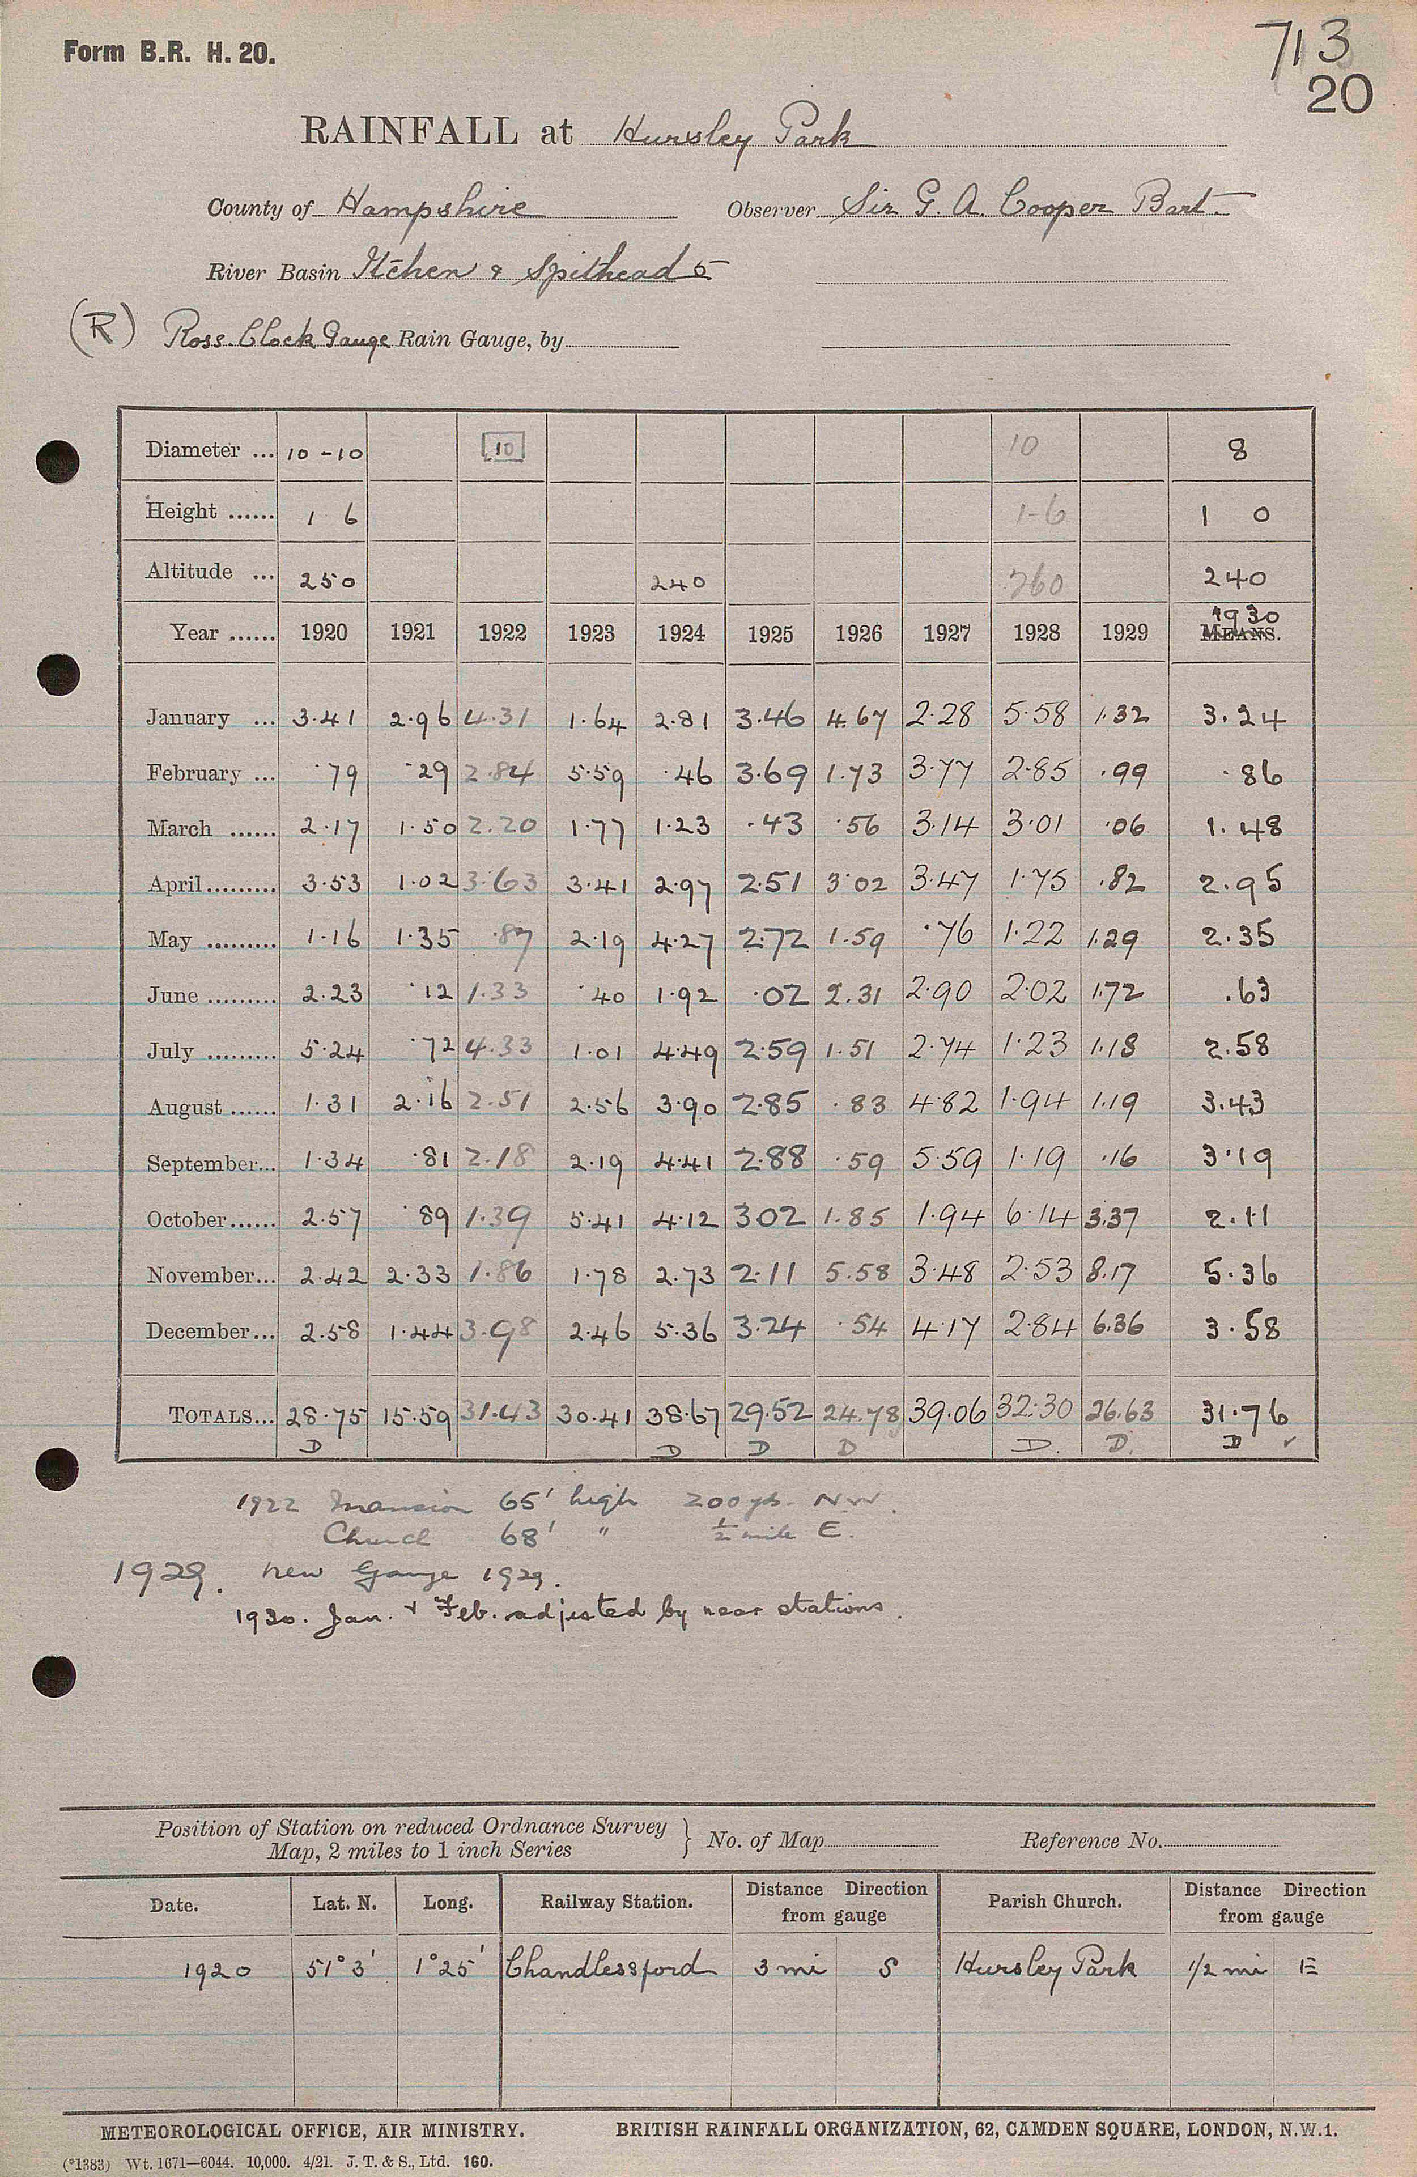 Form B.R. H. 20.
713
20
RAINFALL at Hursley Park
County of Hampshire Observer Sir G. A. Cooper Bart.
River Basin Itchen & Spithead 5
(R) Ross. Clock Gauge Rain Gauge, by
Diameter ... 10-10 10 10 8
Height ...... 1 6 1-6 1 0
Altitude ... 250 240 260 240
Year ...... 1920 1921 1922 1923 1924 1925 1926 1927 1928 1929 1930 MEANS.
January ... 3.41 2.96 4.31 1.64 2.81 3.46 4.67 2.28 5.58 1.32 3.24
February ... .79 .29 2.84 5.59 .46 3.69 1.73 3.77 2.85 .99 .86
March ...... 2.17 1.50 2.20 1.77 1.23 .43 .56 3.14 3.01 .06 1.48
April ......... 3.53 1.02 3.63 3.41 2.97 2.51 3.02 3.47 1.75 .82 2.95
May ......... 1.16 1.35 .87 2.19 4.27 2.72 1.59 .76 1.22 1.29 2.35
June ......... 2.23 .12 1.33 .40 1.92 .02 2.31 2.90 2.02 1.72 .63
July ......... 5.24 .72 4.33 1.01 4.49 2.59 1.51 2.74 1.23 1.18 2.58
August ...... 1.31 2.16 2.51 2.56 3.90 2.85 .83 4.82 1.94 1.19 3.43
September... 1.34 .81 2.18 2.19 4.41 2.88 .59 5.59 1.19 .16 3.19
October...... 2.57 .89 1.39 5.41 4.12 3.02 1.85 1.94 6.14 3.37 2.11
November... 2.42 2.33 1.86 1.78 2.73 2.11 5.58 3.48 2.53 8.17 5.36
December... 2.58 1.44 3.98 2.46 5.36 3.24 .54 4.17 2.84 6.36 3.58
TOTALS... 28.75 15.59 31.43 30.41 38.67 29.52 24.78 39.06 32.30 26.63 31.76
D D D D D. D. D ✓
1922 Mansion 65' high 200 yds. NW.
Church 68' " ½ mile E.
1929. New Gauge 1929.
1930. Jan. + Feb. adjusted by near stations.
Position of Station on reduced Ordnance Survey Map, 2 miles to 1 inch Series } No. of Map Reference No.
Date. Lat. N. Long. Railway Station. Distance Direction from gauge Parish Church. Distance Direction from gauge
1920 51° 3' 1° 25' Chandlessford 3 mi S Hursley Park 1/2 mi E
METEOROLOGICAL OFFICE, AIR MINISTRY. BRITISH RAINFALL ORGANIZATION, 62, CAMDEN SQUARE, LONDON, N.W.1.
(*1383) Wt. 1671—6044. 10,000. 4/21. J. T. & S., Ltd. 160.